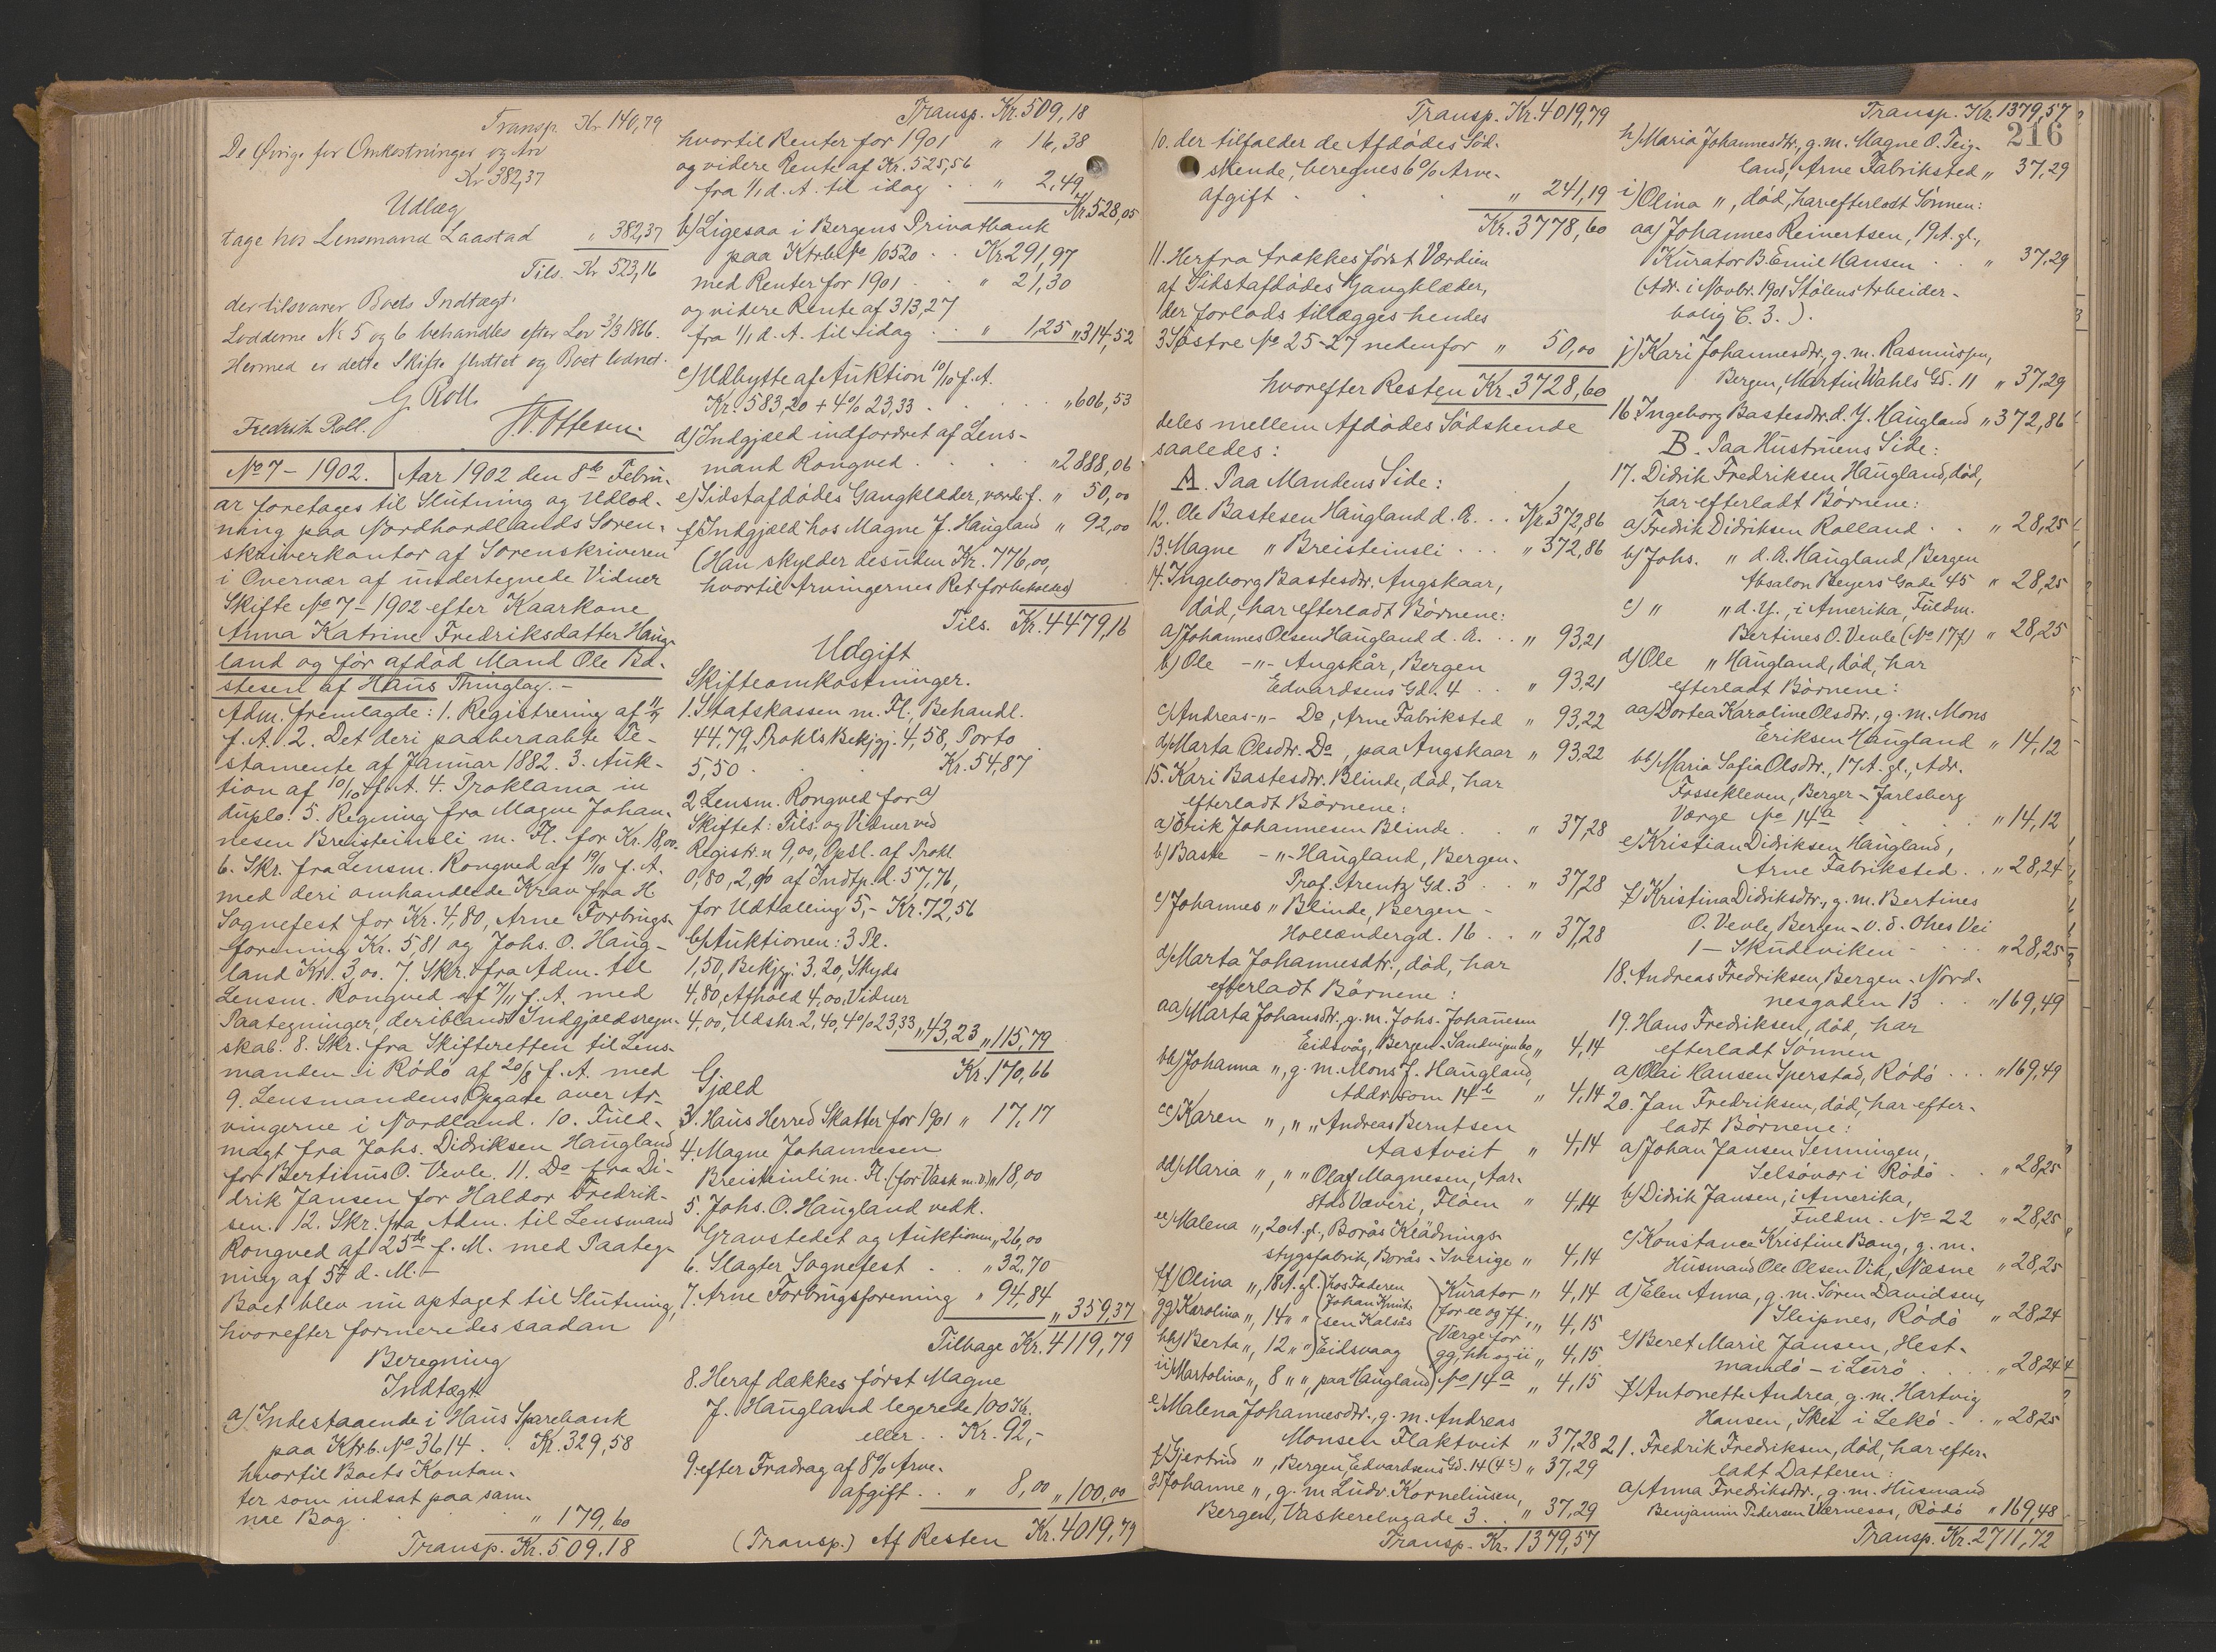 Transp. Kr 140,79
De Øvrige for Omkostninger og Arv
Kr 382,37
Udlæg
tage hos Lensmand Laastad " 382,37
Tils. Kr 523,16
der tilsvarer Boets Indtægt.
Lodderne No 5 og 6 behandles efter Lov 3/3 1866.
Hermed er dette Skifte sluttet og Boet lodnet.
G. Roll.
Fredrik Roll.
No 7 – 1902. Aar 1902 den 8de Febru-
ar foretages til Slutning og Udlod-
ning paa Nordhordlands Soren-
skriverkontor af Sorenskriveren
i Overvær af undertegnede Vidner
Skifte No 7 – 1902 efter Kaarkone
Anna Katrine Fredriksdatter Haug-
land og før afdød Mand Ole Ba-
stesen af Haus Thinglag. –
Adm. fremlagde: 1. Registrering af
f. A. 2. Det deri paaberaabte Te-
stamente af Januar 1882. 3. Auk-
tion af 10/10 f. A. 4. Proklama in
duplo. 5. Regning fra Magne Johan-
nesen Breisteinsli m. Fl. for Kr. 18,00.
6. Skr. fra Lensm. Rongved af 19/10 f. A.
med deri omhandlede Krav fra H.
Sognefest for Kr. 4,80, Arne Forbrugs-
forening Kr. 5,81 og Johs. O. Haug-
land Kr. 3,00. 7. Skr. fra Adm. til
Lensm. Rongved af 7/11 f. A. med
Paategninger, deriblandt Indgjældsregn-
skab. 8. Skr. fra Skifteretten til Lens-
manden i Rødø af 20/8 f. A. med
9. Lensmandens Opgave over Ar-
vingerne i Nordland. 10. Fuld-
magt fra Johs. Didriksen Haugland
for Bertinus O. Vevle. 11. Do fra Di-
drik Jansen for Haldor Fredrik-
sen. 12. Skr. fra Adm. til Lensmand
Rongved af 25de f. M. med Paateg-
ning af 5te d. M. –
Boet blev nu optaget til Slutning,
hvorefter formeredes saadan
Beregning
Indtægt
a) Indestaaende i Haus Sparebank
paa Ktrb. No 3614 . . Kr. 329,58
hvortil Boets Kontan-
ter som indsat paa sam-
me Bog . " 179,60
Transp. Kr. 509.18
Transp. Kr. 509,18
hvortil Renter for 1901 " 16,38
og videre Rente af Kr. 525,56
fra 1/1 d. A. til idag . . " 2,49
Kr. 528,05
b) Ligesaa i Bergens Privatbank
paa Ktrb. No 10520 . . Kr 291,97
med Renter for 1901 . " 21,30
og videre Rente af 313,27
fra 1/1 d. A. til idag . . " 1,25 " 314,52
c) Udbytte af Auktion 10/10 f. A.
Kr. 583,20 + 4% 23,33 . . . . " 606,53
d) Indgjæld indfordret af Lens-
mand Rongved . . . . " 2888,06
e) Sidstafdødes Gangklæder, værd. f. " 50,00
f) Indgjæld hos Magne J. Haugland " 92,00
(Han skylder desuden Kr. 776,00,
hvortil Arvingernes Ret forbeholdes)
Tils. Kr. 4479,16
Udgift
Skifteomkostninger.
1. Statskassen m. Fl., Behandl.
44,79, Prokl's Bekjgj. 4,58, Porto
5,50 . . Kr. 54,87
2. Lensm. Rongved for a)
Skiftet: Tils. og Vidner ved
Registr. n 9,00, Opsl. af Prokl
0,80, 2,00 af Indtp. d. 57,76,
for Udtælling 5,– Kr. 72,56
b) Auktionen: 3 Pl.
1,50, Bekjgj. 3,20, Skyds
4,80, Afhold 4,00, Vidner
4,00, Udskr. 2,40, 4% 23,33 " 43,23 " 115,79
Kr. 170,66
Gjæld
3. Haus Herred Skatter for 1901 " 17,17
4. Magne Johannesen
Breisteinli m. Fl. (for Vask m. v.) " 18,00
5. Johs. O. Haugland vedk.
Gravstedet og Auktionen " 26,00
6. Slagter Sognefest . . " 32,70
7. Arne Forbrugsforening " 94,84
" 359,37
Tilbage Kr. 4119,79
8. Heraf dækkes først Magne
J. Haugland legerede 100 Kr.
eller . . Kr. 92,–
9. efter Fradrag af 8% Arve-
afgift . . " 8,00 " 100,00
(Transp.) Af Resten Kr. 4019,79
Transp. Kr. 4019,79
10. der tilfalder de Afdødes Sød-
skende, beregnes 6% Arve-
afgift . . . " 241,19
Kr. 3778,60
11. Herfra trækkes først Værdien
af Sidstafdødes Gangklæder,
der forlods tillægges hendes
3 Søstre No 25–27 nedenfor " 50,00
hvorefter Resten Kr. 3728,60
deles mellem Afdødes Sødskende
saaledes:
A. Paa Mandens Side:
12. Ole Bastesen Haugland d. Æ. . . Kr 372,86
13. Magne " Breisteinsli . . . " 372,86
14. Ingeborg Bastesdtr. Angskaar,
død, har efterladt Børnene:
a) Johannes Olsen Haugland d. Æ. . . " 93,21
b) Ole –"– Angskår, Bergen
Edvardsens Gd. 4 . . " 93,21
c) Andreas –"– Do, Arne Fabriksted " 93,22
d) Marta Olsdtr. Do, paa Angskaar " 93,22
15. Kari Bastesdtr. Blinde, død, har
efterladt Børnene:
a) Erik Johannesen Blinde . . " 37,28
b) Baste –"– Haugland, Bergen-
Prof. Arentz Gd. 3 . . " 37,28
c) Johannes " Blinde, Bergen –
Hollændergd. 16 . . " 37,28
d) Marta Johannesdtr., død, har
efterladt Børnene:
aa) Marta Johansdtr., g. m. Johs. Johannesen
Eidsvåg, Bergen – Sandvigen 60 " 4,14
bb) Johanna ", g. m. Mons J. Haugland,
Addr. som 14 b " 4,14
cc) Karen ", " " Andreas Berntsen
Aastveit " 4,14
dd) Maria ", " " Olaf Magnesen, Aar-
stad Væveri, Fløen " 4,14
ee) Malena ", 20 A. gl., Borås Klädnings-
stygsfabrik, Borås – Sverige " 4,14
ff) Olina ", 18 A. gl. hos Faderen Kurator " 4,14
gg) Karolina ", 14 " " Johan Knut- sen Kalsås for ee og ff, " 4,15
hh) Berta ", 12 " " Eidsvaag Værge for gg, hh og ii " 4,15
ii) Martolina ", 8 " ", paa Haugland No 14 a " 4,15
e) Malena Johannesdtr., g. m. Andreas
Monsen Flaktveit " 37,28
f) Gjertrud ", Bergen, Edvardsens Gd. 14 " 37,29
g) Johanne ", g. m. Ludv. Korneliussen,
Bergen, Vaskerelvgade 3 . . " 37,29
Transp. Kr. 1379,57
Transp. Kr. 1379,57
216
h) Maria Johannesdtr., g. m. Magne O. Teig-
land, Arne Fabriksted " 37,29
i) Olina ", død, har efterladt Sønnen:
aa) Johannes Reinertsen, 19 A. gl.,
Kurator B. Emil Hansen . . " 37,29
(Adr. i Novbr. 1901 Stølens Arbeider-
bolig C. 3.).
j) Kari Johannesdtr., g. m. Rasmussen,
Bergen, Martin Wahls Gd. 11 " 37,29
16. Ingeborg Bastesdtr. d. Y. Haugland " 372,86
B. Paa Hustruens Side:
17. Didrik Fredriksen Haugland, død,
har efterladt Børnene:
a) Fredrik Didriksen Rolland . . " 28,25
b) Johs. " d. Æ. Haugland, Bergen
Absalon Beyers Gade 45 " 28,25
c) " " d. Y., i Amerika, Fuldm.
Bertines O. Vevle (No 17 f) " 28,25
d) Ole " Haugland, død, har
efterladt Børnene:
aa) Dortea Karoline Olsdtr., g. m. Mons
Eriksen Haugland " 14,12
bb) Maria Sofia Olsdtr., 17 A. gl., Adr.
Fossekleven, Berger – Jarlsberg
Værge No 14 a . . " 14,12
e) Kristian Didriksen Haugland,
Arne Fabriksted . . " 28,24
f) Kristina Didriksdtr., g. m. Bertines
O. Vevle, Bergen – v. d. Ohes Vei
1 – Skudeviken . . " 28,25
18. Andreas Fredriksen, Bergen – Nord-
nesgaden 13 . . " 169,49
19. Hans Fredriksen, død, har
efterladt Sønnen
a) Olai Hansen Sperstad, Rødø . . . " 169,49
20. Jan Fredriksen, død, har efter-
ladt Børnene:
a) Johan Jansen Senningen,
Selsøvær i Rødø . . " 28,25
b) Didrik Jansen, i Amerika,
Fuldm. No 22 " 28,25
c) Konstance Kristine Bang, g. m.
Husmand Ole Olsen Vik, Næsne " 28,25
d) Elen Anna, g. m. Søren Davidsen,
Sleipnes, Rødø " 28,24
e) Beret Marie Jansen, Hest-
mandø – i Lurø . . " 28,24
f) Antonette Andrea, g. m. Hartvig
Hansen, Skei i Lekø . . " 28,25
21. Fredrik Fredriksen, død, har efter-
ladt Datteren:
a) Anna Fredriksdtr., g. m. Husmand
Benjamin Pedersen Værnesos, Rødø " 169,48
Transp. Kr. 2711,72